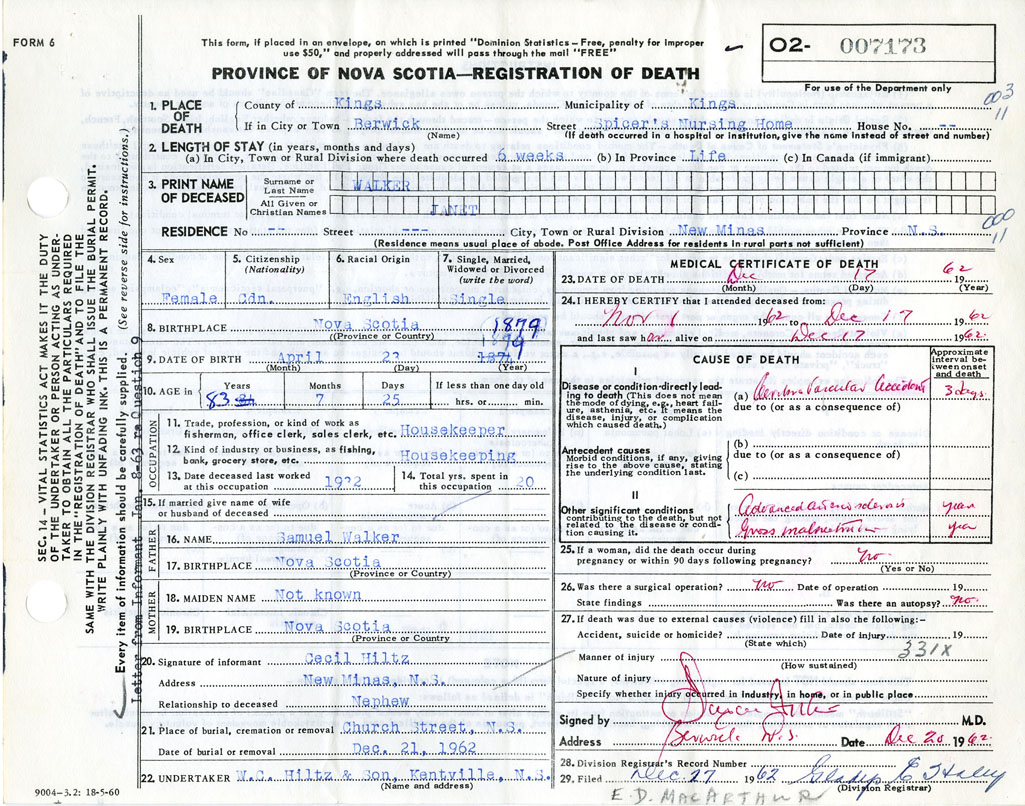 FORM 6
This form, if placed in an envelope, on which is printed "Dominion Statistics – Free, penalty for improper
use $50," and properly addressed will pass through the mail "FREE"
O2- 007173
PROVINCE OF NOVA SCOTIA—REGISTRATION OF DEATH
For use of the Department only
003
11
1. PLACE OF DEATH
County of Kings Municipality of Kings
If in City or Town Berwick Street Spicer's Nursing Home House No. --
(Name) (If death occurred in a hospital or institution, give the name instead of street and number)
2. LENGTH OF STAY (in years, months and days)
(a) In City, Town or Rural Division where death occurred 6 weeks (b) In Province Life (c) In Canada (if immigrant)
3. PRINT NAME OF DECEASED
Surname or Last Name WALKER
All Given or Christian Names JANET
000
11
RESIDENCE No -- Street --- City, Town or Rural Division New Minas Province N.S.
(Residence means usual place of abode. Post Office Address for residents in rural parts not sufficient)
4. Sex
Female
5. Citizenship (Nationality)
Cdn.
6. Racial Origin
English
7. Single, Married, Widowed or Divorced (write the word)
Single
8. BIRTHPLACE Nova Scotia
(Province or Country)
1879
9. DATE OF BIRTH April 23
(Month) (Day) (Year)
10. AGE in
Years Months Days If less than one day old
83 7 25 hrs. or min.
OCCUPATION
11. Trade, profession, or kind of work as
fisherman, office clerk, sales clerk, etc. Housekeeper
12. Kind of industry or business, as fishing,
bank, grocery store, etc. Housekeeping
13. Date deceased last worked
at this occupation 1932
14. Total yrs. spent in
this occupation 20
15. If married give name of wife
or husband of deceased
FATHER
16. NAME Samuel Walker
17. BIRTHPLACE Nova Scotia
(Province or Country)
MOTHER
18. MAIDEN NAME Not known
19. BIRTHPLACE Nova Scotia
(Province or Country
20. Signature of informant Cecil Hiltz
Address New Minas, N.S.
Relationship to deceased Nephew
21. Place of burial, cremation or removal Church Street, N.S.
Date of burial or removal Dec. 21, 1962
22. UNDERTAKER W.C. Hiltz & Son, Kentville, N.S.
(Name and address)
MEDICAL CERTIFICATE OF DEATH
23. DATE OF DEATH Dec 17 62
(Month) (Day) (Year)
24. I HEREBY CERTIFY that I attended deceased from:
Nov 1 1962 to Dec 17 1962
and last saw her alive on Dec 17 1962.
CAUSE OF DEATH
Approximate interval between onset and death
I
Disease or condition directly leading to death (This does not mean
the mode of dying, e.g., heart failure, asthenia, etc. It means the
disease, injury, or complication
which caused death.)
(a) Cerebro Vascular Accident 3 days
due to (or as a consequence of)
Antecedent causes
Morbid conditions, if any, giving
rise to the above cause, stating
the underlying condition last.
(b)
due to (or as a consequence of)
(c)
II
Other significant conditions
contributing to the death, but not
related to the disease or condition causing it.
Advanced arteriosclerosis years
Gross malnutrition
25. If a woman, did the death occur during
pregnancy or within 90 days following pregnancy? no.
(Yes or No)
26. Was there a surgical operation? no Date of operation 19
State findings Was there an autopsy? no.
27. If death was due to external causes (violence) fill in also the following:-
Accident, suicide or homicide? Date of injury 19
(State which)
331X
Manner of injury
(How sustained)
Nature of injury
Specify whether injury occurred in industry, in home, or in public place
Signed by M.D.
Address Berwick N.S. Date Dec 20 1962.
28. Division Registrar's Record Number
29. Filed Dec 27 1962
(Division Registrar)
E.D. MACARTHUR
SEC. 14 – VITAL STATISTICS ACT MAKES IT THE DUTY
OF THE UNDERTAKER OR PERSON ACTING AS UNDER-
TAKER TO OBTAIN ALL THE PARTICULARS REQUIRED
IN THE "REGISTRATION OF DEATH" AND TO FILE THE
SAME WITH THE DIVISION REGISTRAR WHO SHALL ISSUE THE BURIAL PERMIT.
WRITE PLAINLY WITH UNFADING INK. THIS IS A PERMANENT RECORD.
Every item of information should be carefully supplied. (See reverse side for instructions.)
Letter from Informant Jan. 8-63 re Question 9
9004-3.2: 18-5-60